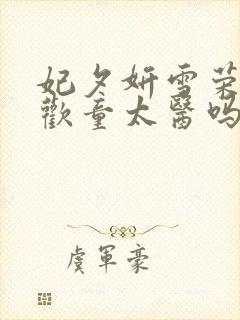 妃夕妍雪荣
歡童太醫吗
虞軍豪